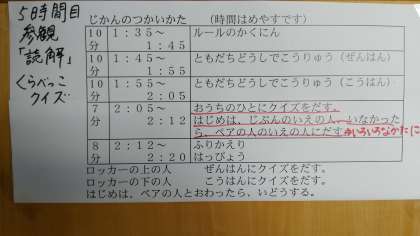 5時間目
参観
「読解」
くらべっこ
クイズ
じかんのつかいかた　（時間はめやすです）
10分　1：35～1：45　ルールのかくにん
10分　1：45～1：55　ともだちどうしでこうりゅう（ぜんはん）
10分　1：55～2：05　ともだちどうしでこうりゅう（こうはん）
7分　2：05～2：12　おうちのひとにクイズをだす。
はじめは、じぶんのいえの人、いなかった
ら、ペアの人のいえの人にだす ※いろいろなかたに
8分　2：12～2：20　ふりかえり
はっぴょう
ロッカーの上の人　ぜんはんにクイズをだす。
ロッカーの下の人　こうはんにクイズをだす。
はじめは、ペアの人とおわったら、いどうする。